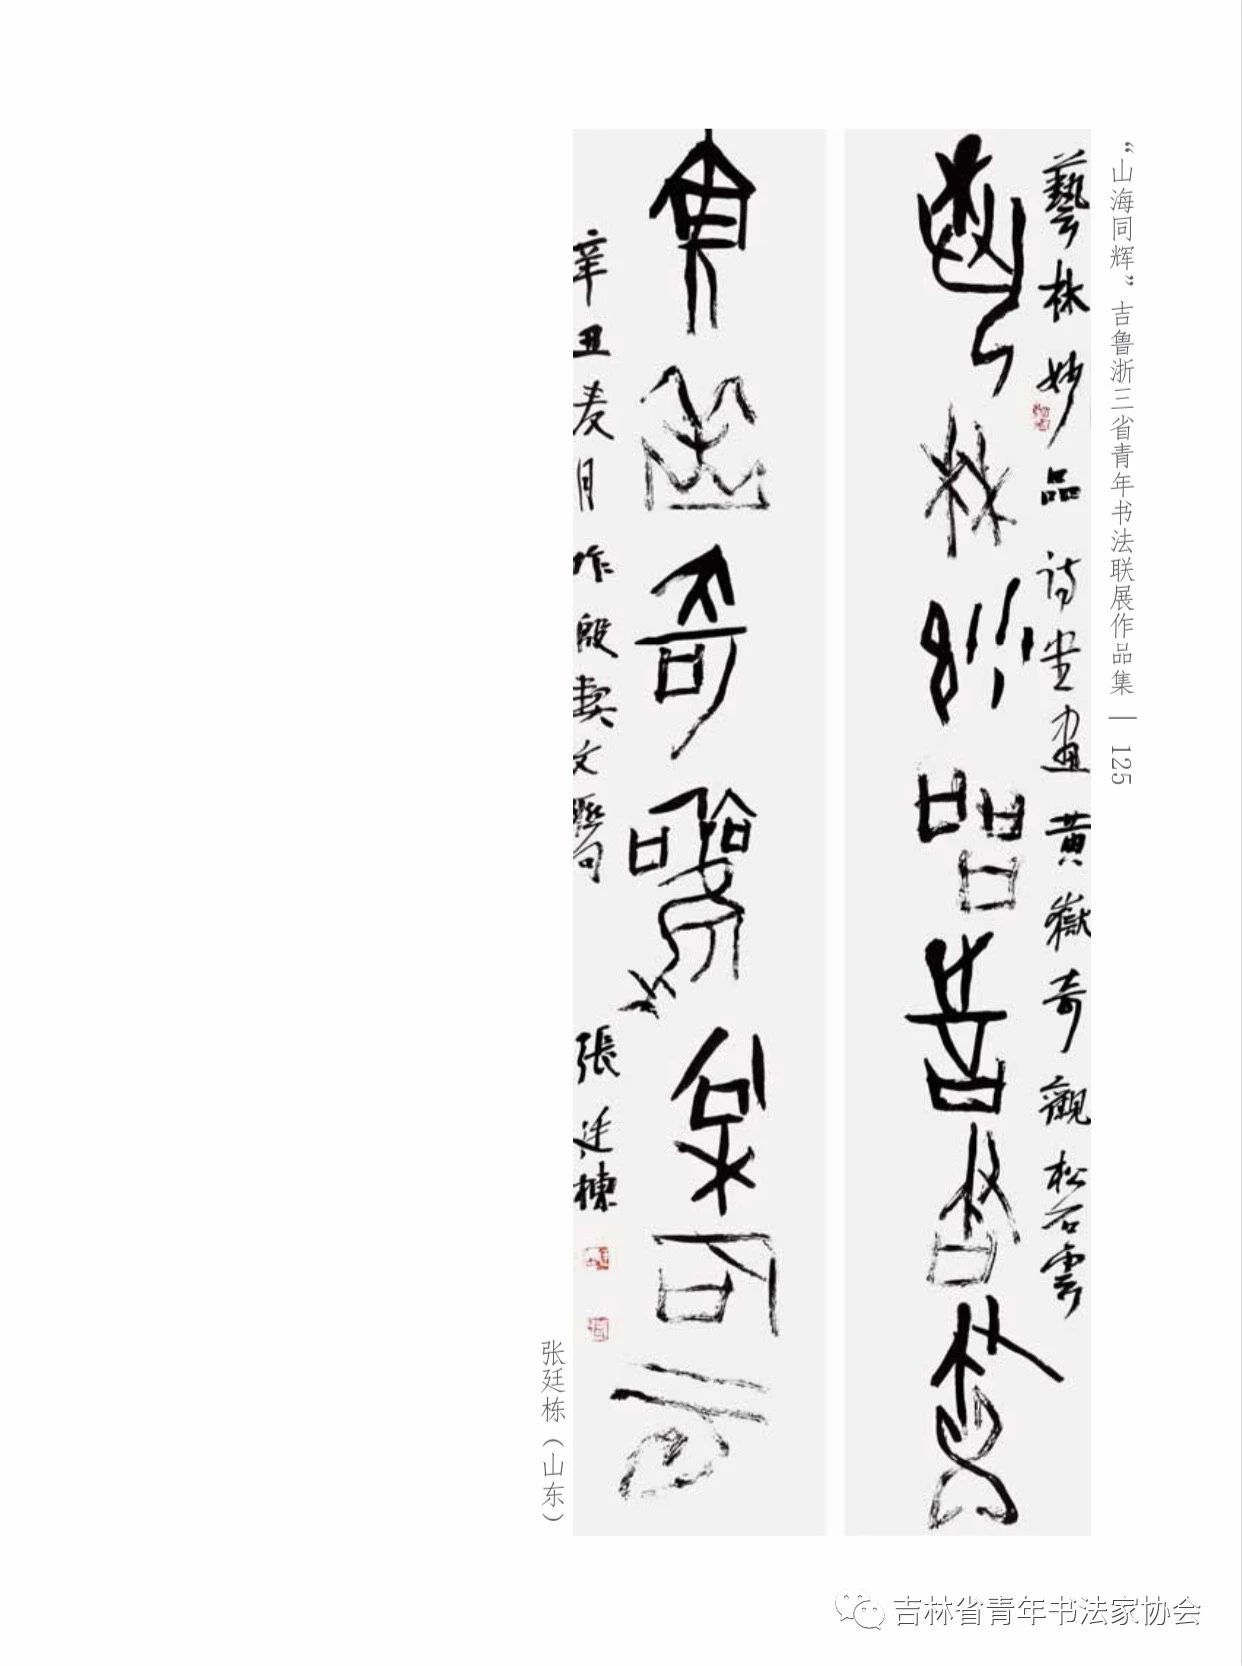 “山海同辉”吉鲁浙三省青年书法联展作品集 — 125
藝林妙品詩書畫黄嶽奇觀松石雲
藝林妙品詩書畫
黄嶽奇觀松石雲
辛丑麦月作殷契文聯句 張廷棟
张廷栋（山东）
吉林省青年书法家协会